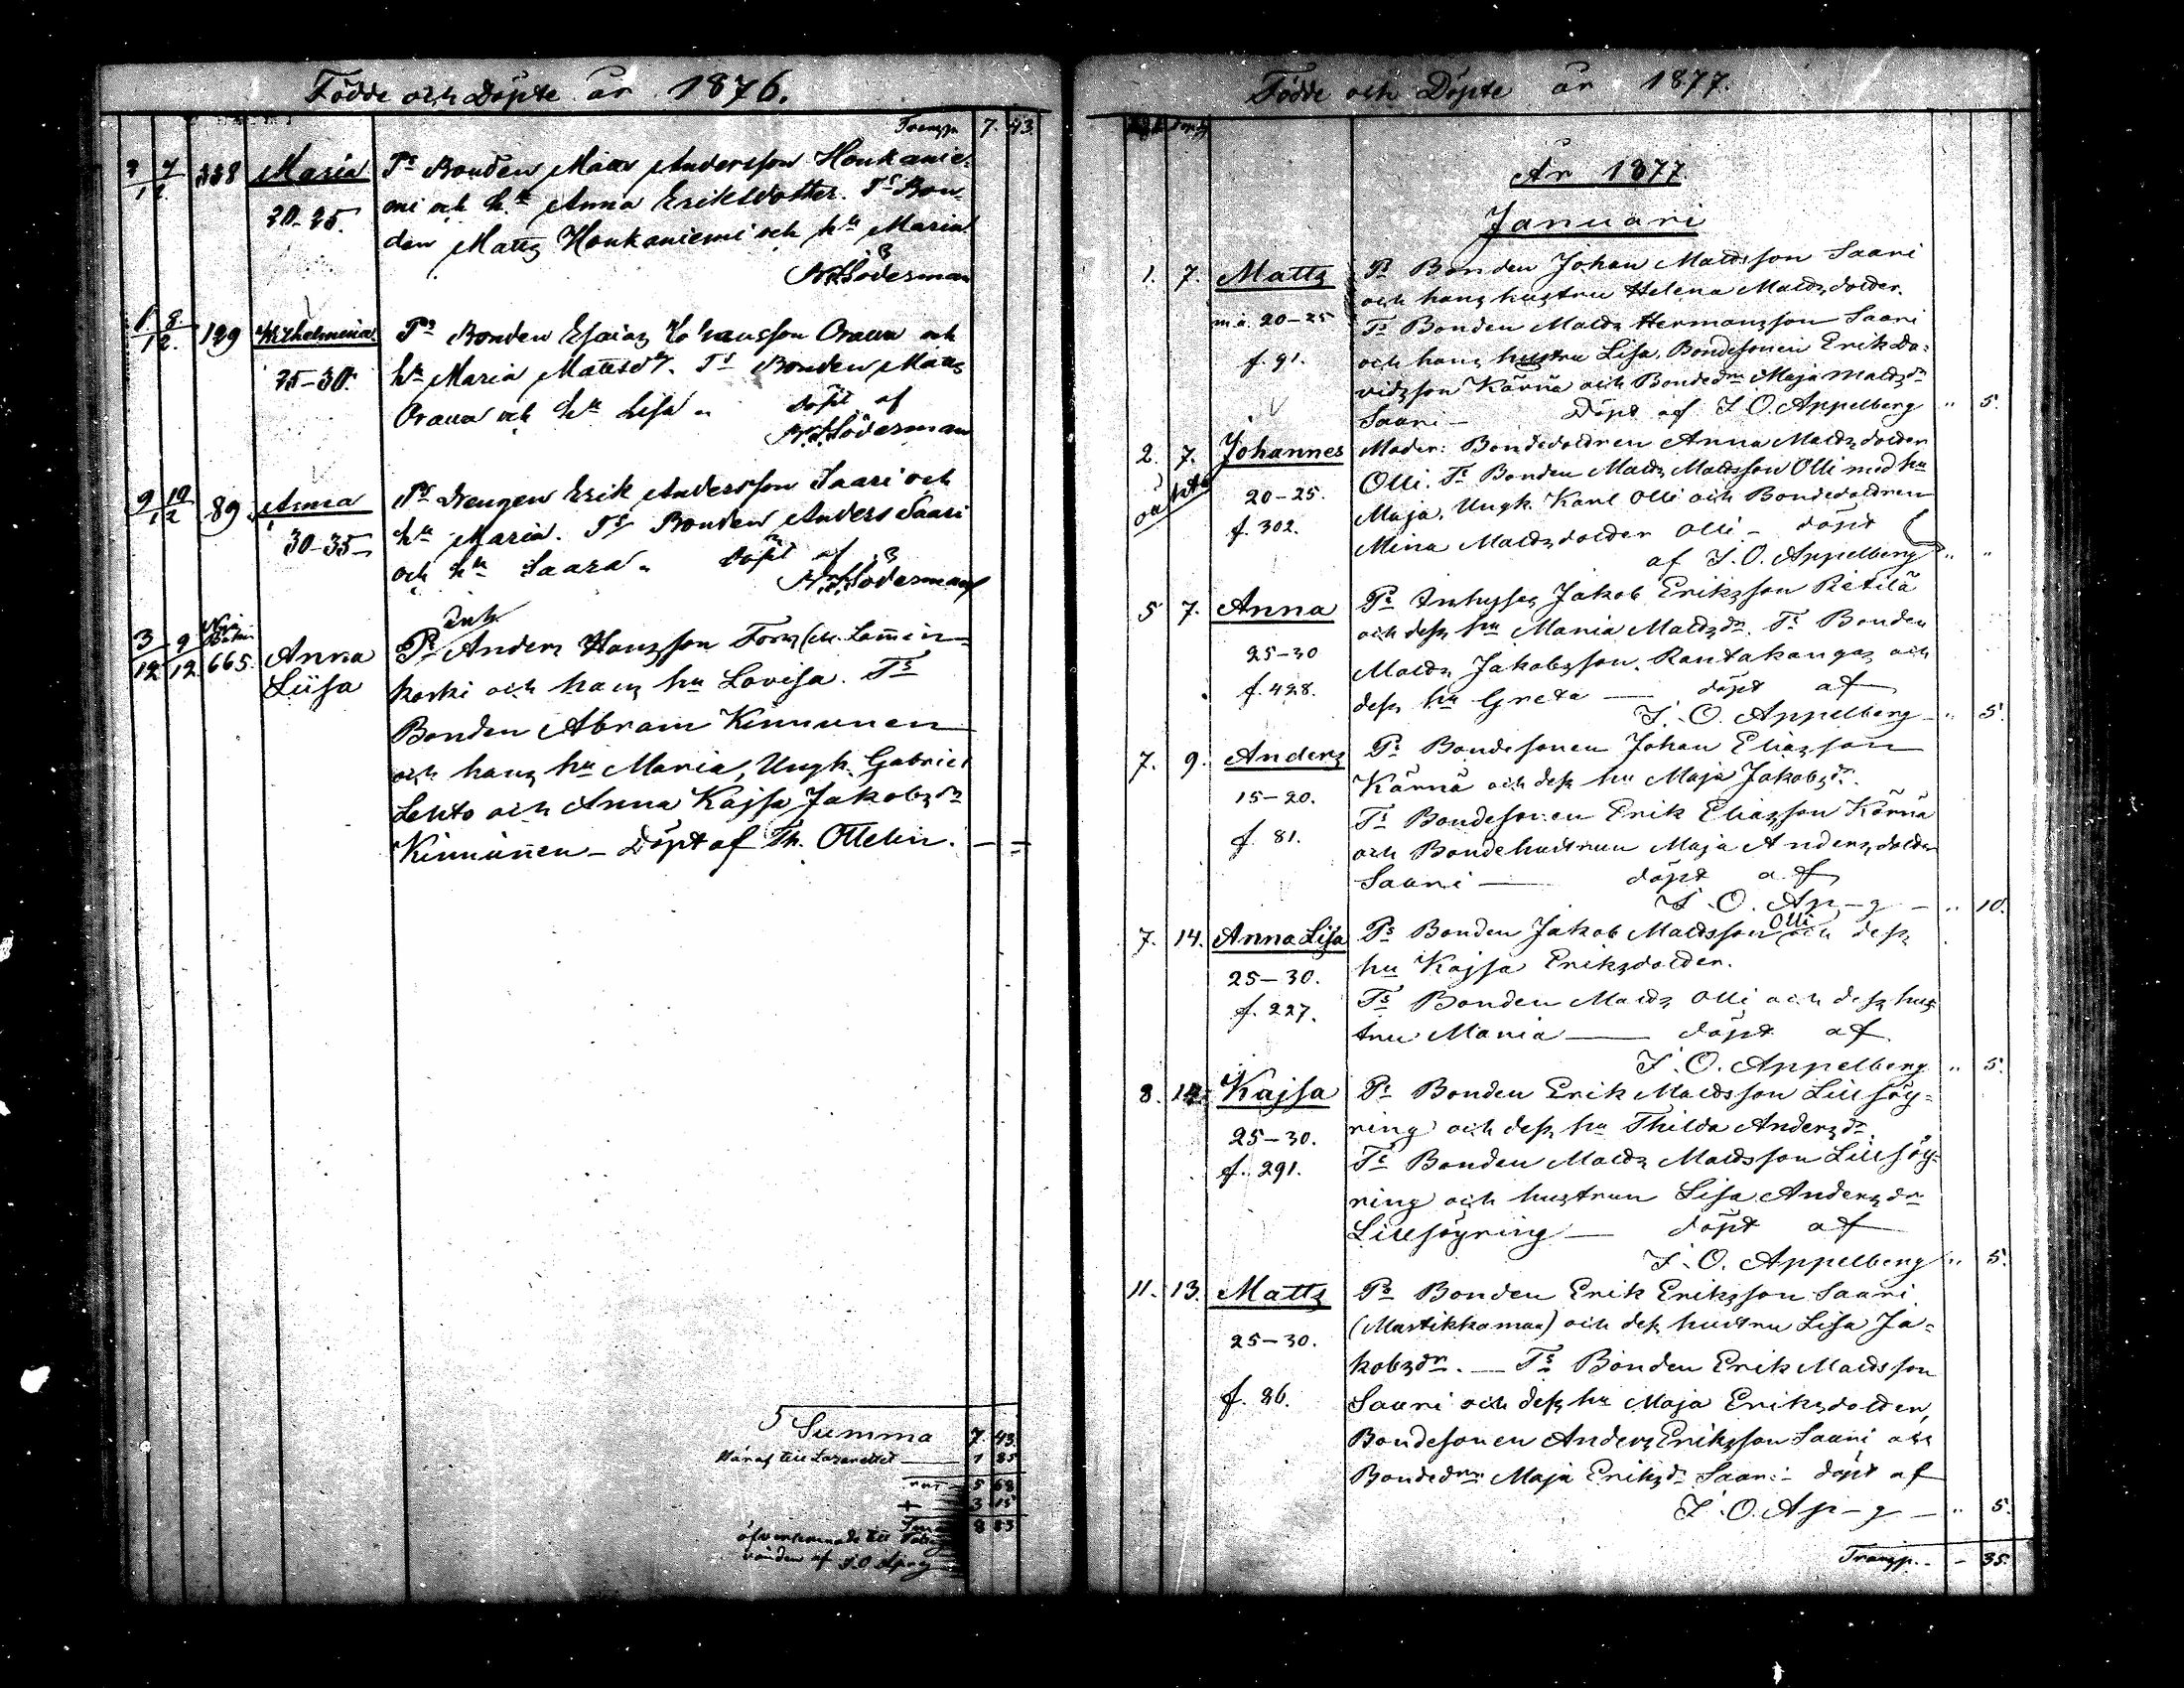 Födde och Döpte år 1876.
Transp. 7. 43.
7/12 338 Maria Ps Bonden Matts Andersson Honkanie-
20-25. mi och hu Anna Eriksdotter. Ts Bon-
den Matts Honkaniemi och hu Maria
Söderman
1/12 8/12 129 Wilhelmina Ps Bonden Esaias Johansson Orava och
25-30. hu Maria Mattsdr. Ts Bonden Matts
Orava och hu Lisa döpt af
Söderman
9/12 10/12 89 Anna Ps Drengen Erik Andersson Saari och
30-35- hu Maria. Ts Bonden Anders Saari
och hu Saara döpt af
Söderman
Inh.
3/12 9/12 665. Anna Ps Anders Hansson Forss (Lamin-
Liisa koski och hans hu Lovisa. Ts
Bonden Abram Kinnunen
och hans hu Maria, Ungk. Gabriel
Lehto och Anna Kajsa Jakobsdr
Kinnunen - Döpt af Th. Ottelin. - =
5 Summa 7. 43.
Häraf till Lazarettet 1 85
5 58
+ 3 15
8 83
af J. O. Apg
Födde och Döpte år 1877.
År 1877
Januari
1. 7. Matts Ps Bonden Johan Mattsson Saari
och hans hustru Helena Mattsdotter.
20-25 Ts Bonden Matts Hermansson Saari
f. 91. och hans hustru Lisa. Bondesonen Erik Da-
vidsson Kärnä och Bondedrn Maja Mattsdr
Saari - Döpt af J. O. Appelberg " 5.
2. 7. Johannes Moder: Bondedottren Anna Mattsdotter
oäkta 20-25. Olli. Ts Bonden Matts Mattsson Olli med hu
f. 302. Maja. Ungk. Karl Olli och Bondedottren
Mina Mattsdotter Olli - döpt
af J. O. Appelberg " "
5 7. Anna Ps Inhyses Jakob Eriksson Pietilä
25-30 och dess hu Maria Mattsdr. Ts Bonden
Matts Jakobsson Rantakangas och
f. 428. dess hu Greta - döpt af
J. O. Appelberg " 5.
7. 9. Anders Ps Bondesonen Johan Eliasson
15-20. Kärnä och dess hu Maja Jakobsdr.
f. 81. Ts Bondesonen Erik Eliasson Kärnä
och Bondehustrun Maja Andersdotter
Saari - döpt af
J. O. Ap-g - " 10.
7. 14. Anna Lisa Ps Bonden Jakob Mattsson Olli och dess
25-30. hu Kajsa Eriksdotter.
f. 227. Ts Bonden Matts Olli och dess hus-
tru Maria - döpt af
J. O. Appelberg " 5.
8. 14. Kajsa Ps Bonden Erik Mattsson Lillsöy-
25-30. ring och dess hu Thilda Andersdr.
f. 291. Ts Bonden Matts Mattsson Lillsöy-
ring och hustrun Lisa Andersdr
Lillsöyring - döpt af
J. O. Appelberg " 5.
11. 13. Matts Ps Bonden Erik Eriksson Saari
25-30. (Mustikkamaa) och dess hustru Lisa Ja-
kobsdr. - Ts Bonden Erik Mattsson
f. 86. Saari och dess hu Maja Eriksdotter,
Bondesonen Anders Eriksson Saari och
Bondedrn Maja Eriksdr Saari - döpt af
J. O. Ap-g - " 5.
Transp. - - 35.